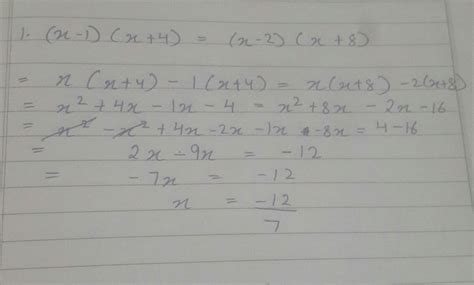 1. (x-1) (x+4) = (x-2) (x+8)
= x (x+4) - 1 (x+4) = x(x+8) - 2(x+8)
= x² + 4x - 1x - 4 = x² + 8x - 2x - 16
= x² - x² + 4x - 2x - 1x - 8x = 4 - 16
= 2x - 9x = -12
= -7x = -12
x = -12
7